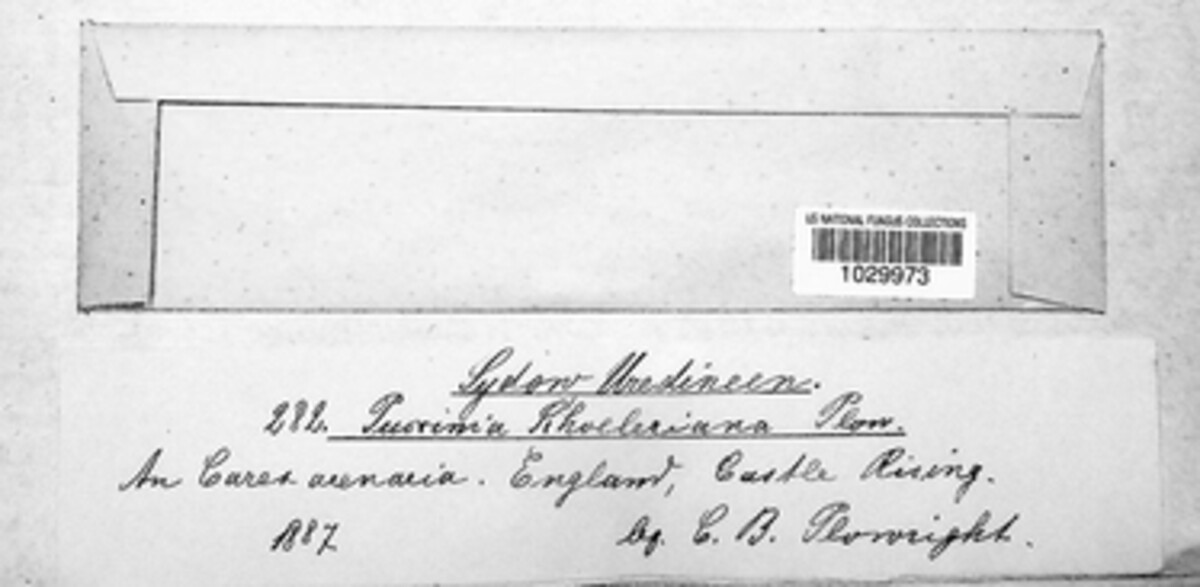 US NATIONAL FUNGUS COLLECTIONS
1029973
Sydow Uredineen.
282. Puccinia Schoeleriana Plow.
An Carex arenaria. England, Castle Rising.
1887. lg. C. B. Plowright.